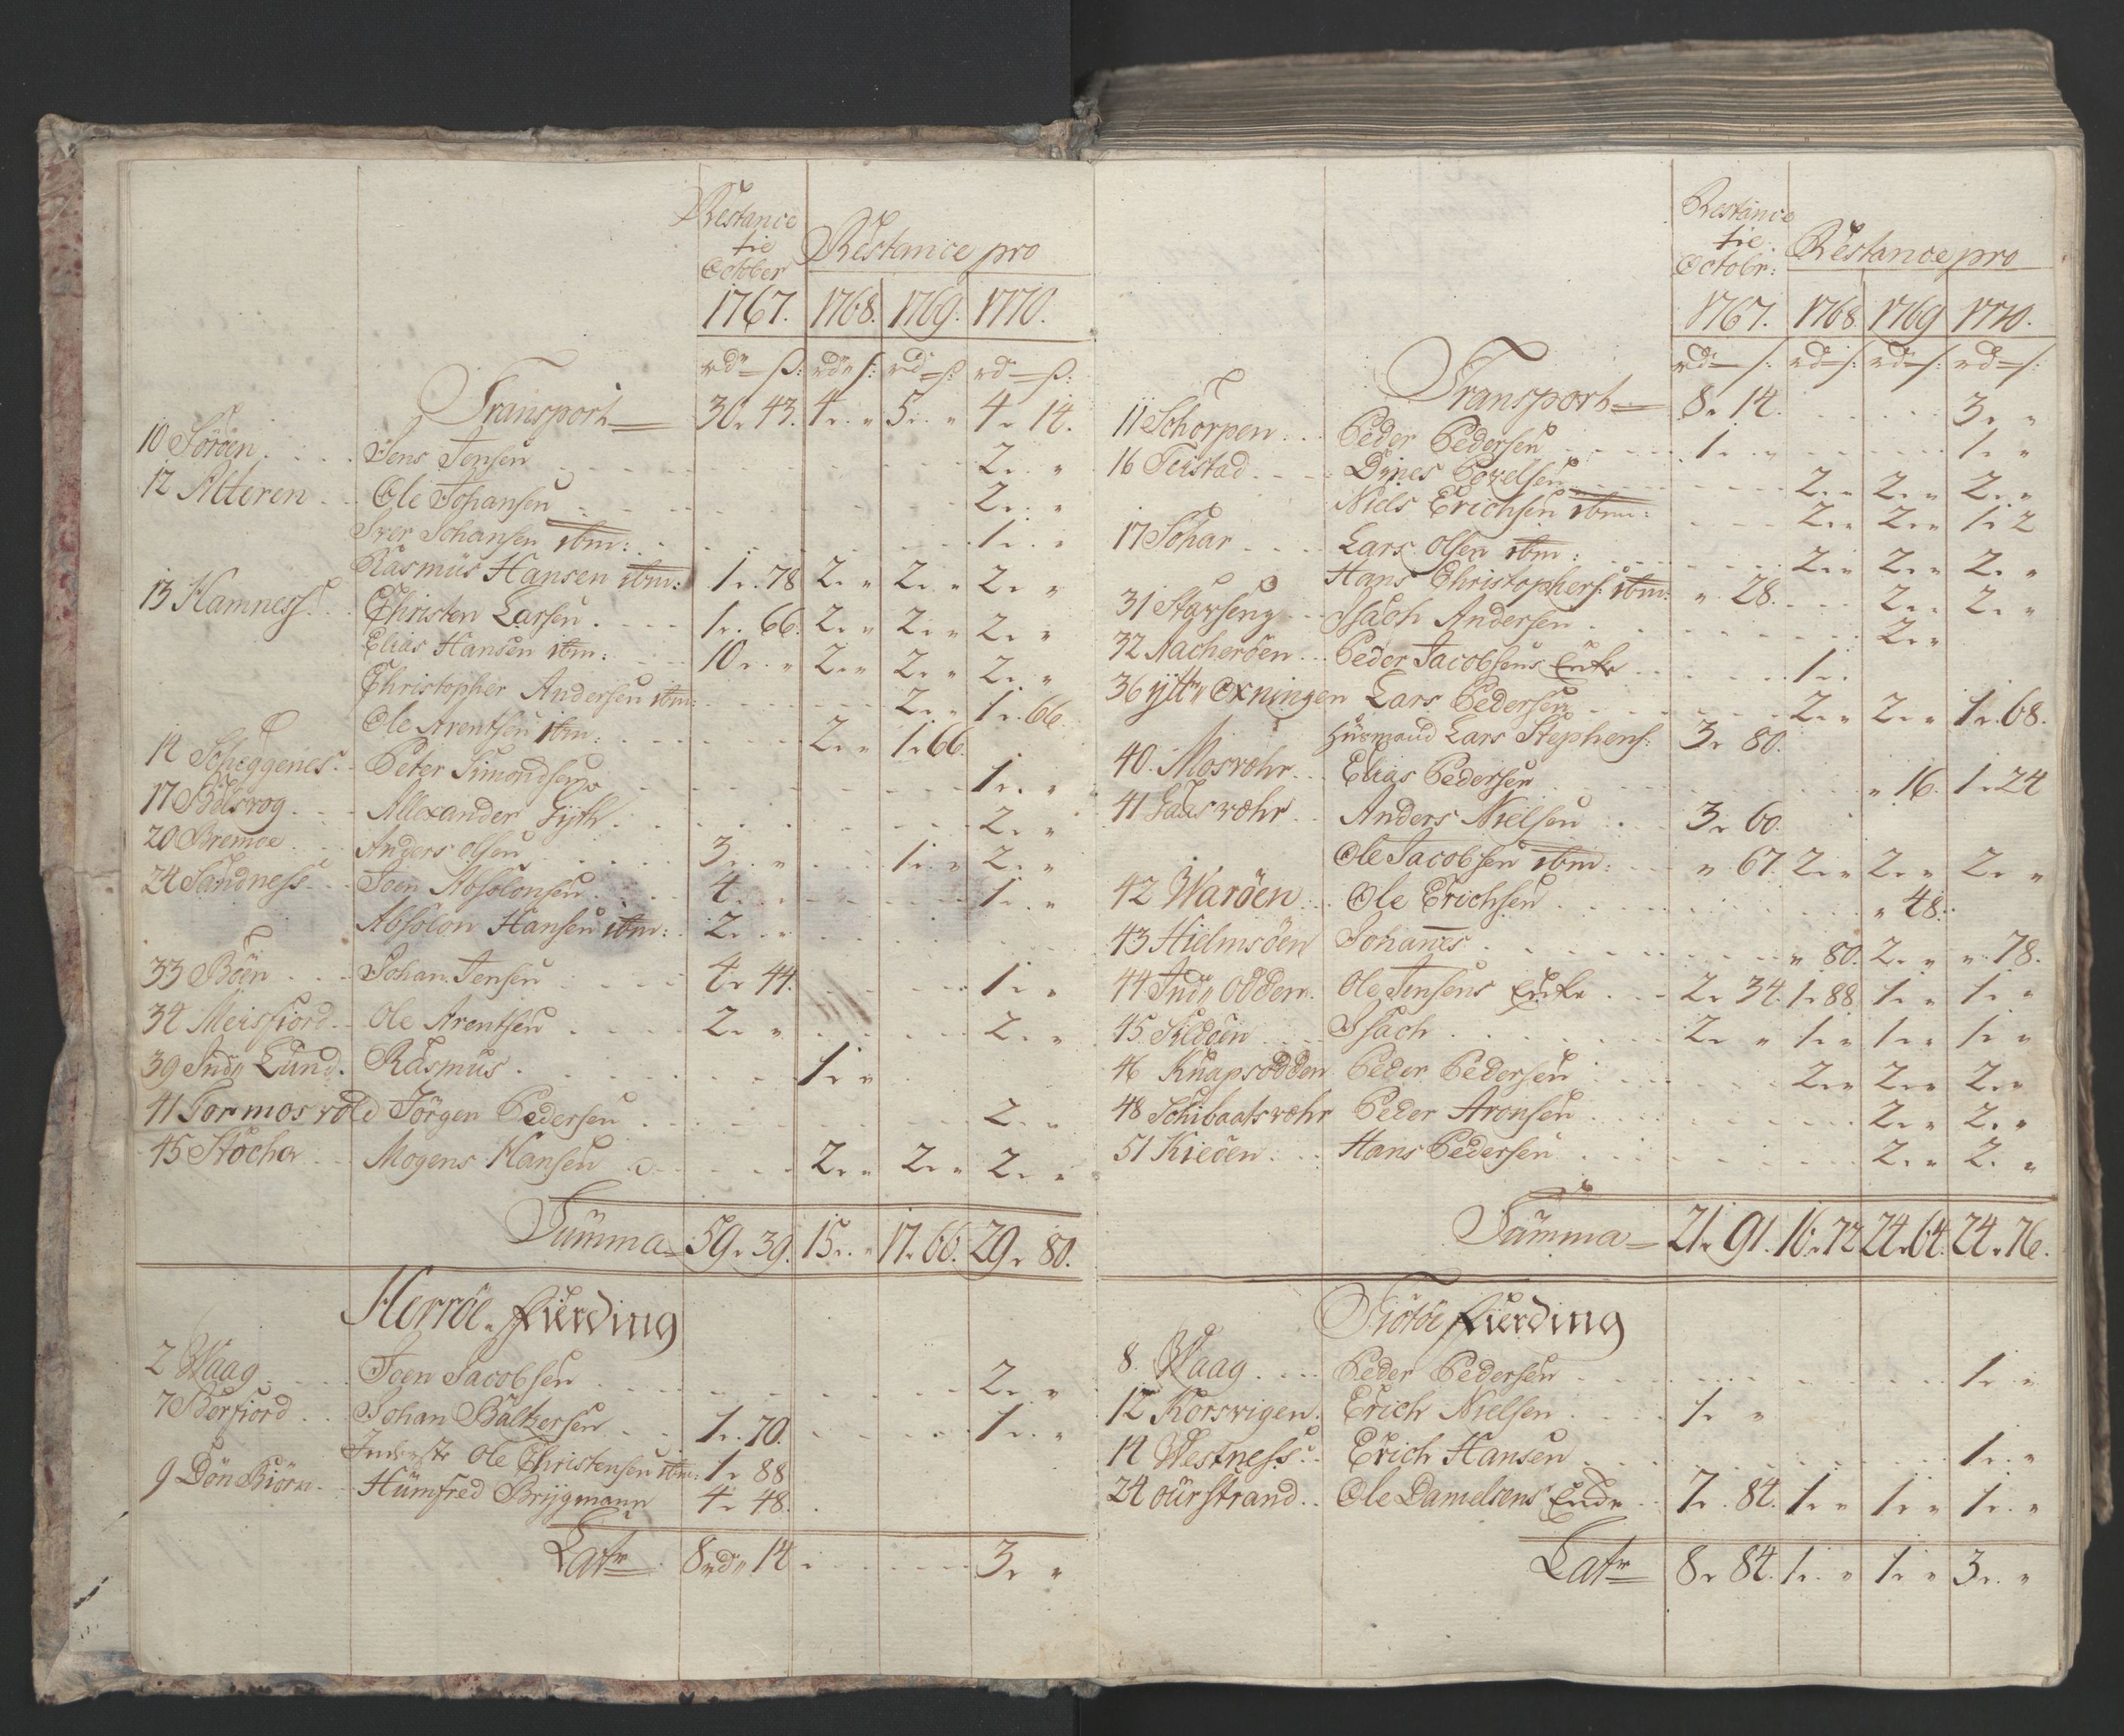 Restance
tie
October
Restance pro
1767. 1768. 1769. 1770.
rd" – ß: rd" ß: rd – ß: rd – ß:
Transport 30. 43. 4. " 5. " 4. 14.
10 Söröen . . . Jens Jensen 2. "
12 Alteren . . Ole Johansen 2. "
Iver Johansen ibm: 1. "
Rasmus Hansen ibm: 1. 78 2. " 2. " 2. "
13 Hamness . . Christen Larsen 1. 66. 2. " 2. " 2. "
Elias Hansen ibm: 10. " 2. " 2. " 2. "
Christopher Andersen ibm: 2. " 1. 66.
Ole Arentsen ibm: 2. " 1. 66.
14 Scheggenes . . Peter Simondsen 1. "
17 Bölsvog . . Allexander Gyth 2. "
20 Bremoe . . Anders Olsen 3. " 1. " 2. "
24 Sandness . . Joen Absolonsen 4. " 1. "
Absolon Hansen ibm: 2. "
33 Böen . . . Johan Jensen 4. 44. 1. "
34 Meisfiord . . Ole Arentsen 2. " 2. "
39 Ind" Lund. Rasmus 1. "
41 Formosvold Jörgen Pedersen 2. "
45 Stöcha . . Mogens Hansen 2. " 2. " 2. "
Summa 59. 39. 15. " 17. 66. 29. 80.
Herröe Fierding
2 Waag . . . Joen Jacobsen 2. "
7 Borfiord . . Johan Baltzersen 1. 70. 1. "
Inderste Ole Christensen ibm: 1. 88
9 Dön Biörn . . Humfred Brygmann 4. 48.
Latr 8 rd" 14 3. "
Restance
tie
Octobr:
Restance pro
1767. 1768. 1769 1770.
rd – ß: rd – ß: rd – ß: rd – ß:
Transport 8. 14. 3. "
11 Schorpen . . . Peder Pedersen 1. " 1. "
16 Teistad . . . Dines Povelsen 2. " 2. " 2. "
Niels Erichsen ibm: 2. " 2. " 1. 2
17 Sohar . . . Lars Olsen ibm: 2. " 2. " 2. "
Hans Christophers: ibm: " 28. 2. " 2. "
31 Starseng . . Isach Andersen 2. "
32 Aacheröen . . Peder Jacobsens Enke 1. "
36 ytt" Oxningen Lars Pedersen 2. " 2. " 1. 68.
Huusmand Lars Stephens: 3. 80.
40. Mosvohr . . Elias Pedersen " 16. 1. 24
41 Gaasvæhr . . Anders Nielsen 3. 60.
Ole Jacobsen ibm: " 67 2. " 2. " 2. "
42 Waröen . . Ole Erichsen " 48.
43 Hielmsöen Johannes " 80. 2. " " 78.
44 Ind" Odden . Ole Jensens Enke 2. 34. 1. 88 1. " 1. "
45 Sildöen . . Isach 2. " 1. " 1. " 1. "
46 Knapsodden Peder Pedersen 2. " 2. " 2. "
48 Schibaatsvæhr Peder Aronsen 2. " 2. "
51 Kieöen . . Hans Pedersen 2. " 2. "
Summa 21. 91. 16. 72 24. 64. 24. 76.
Tiötöe Fierding
8. Waag . . . Peder Pedersen 1. "
12 Korsvigen . Erich Nielsen 1. "
14 Westness . . Erich Hansen 1. "
24 ourstrand . . Ole Danielsens Enke 7. 84. 1. " 1. " 1. "
Latr 8. 84. 1. " 1. " 3. "